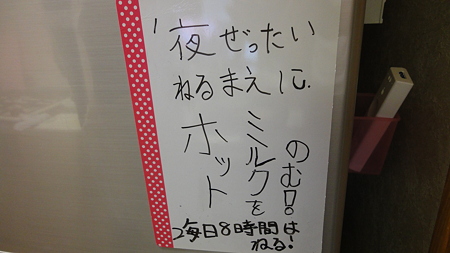 1夜ぜったい
ねるまえに
ホット
ミルクを
のむ!
2毎日8時間は
ねる!